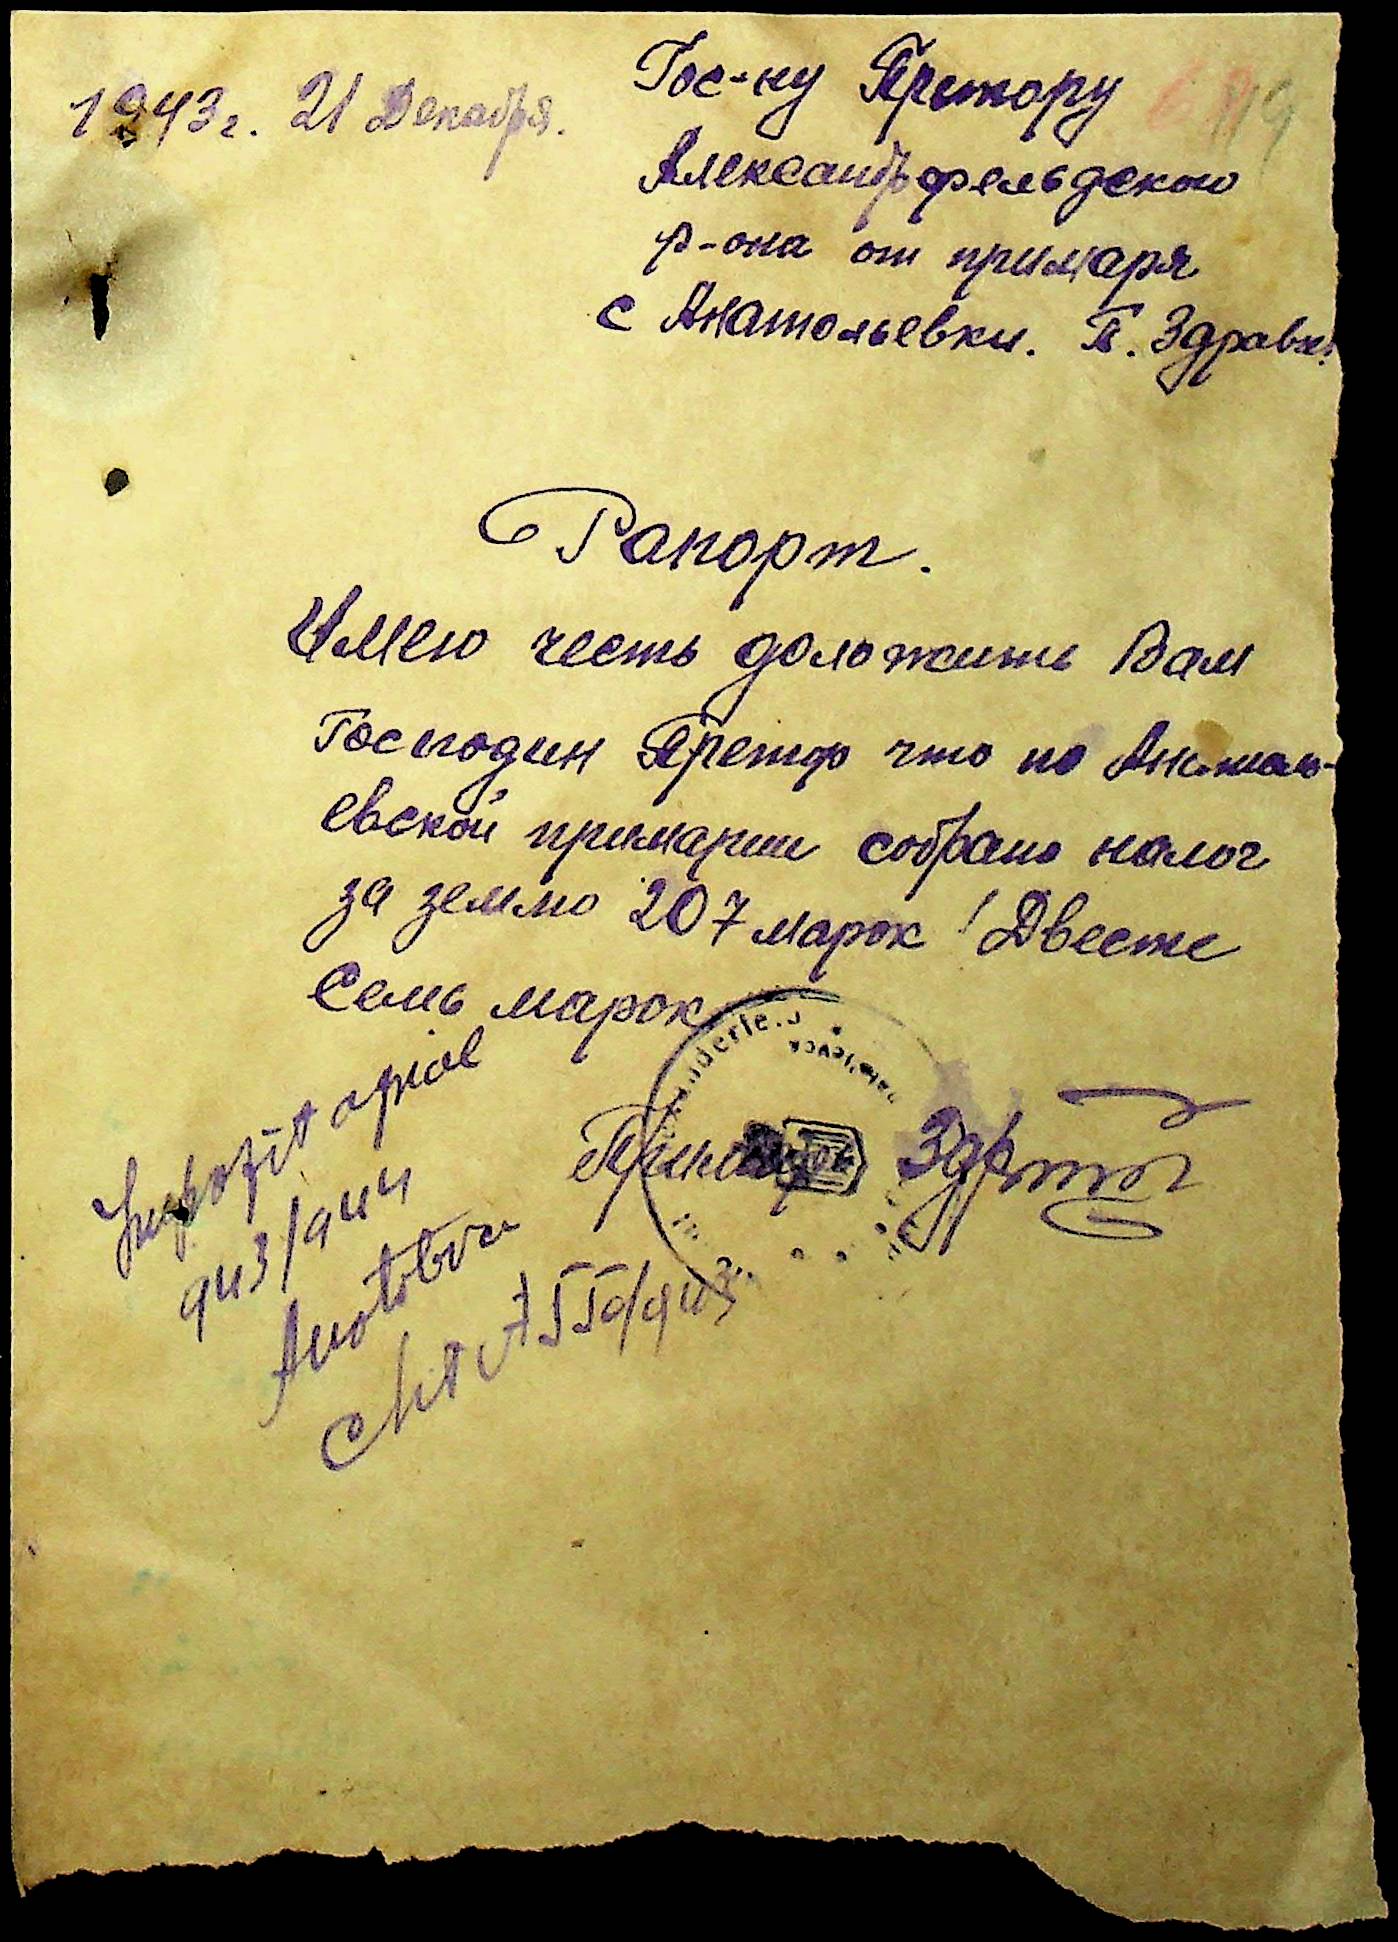 1943г. 21 Декабря.
Гос-ну Претору
Александрфельдского
р-она от примаря
с Анатольевки. П. Здравк
Рапорт.
Имею честь доложить Вам
Господин Претор что по Анатоль-
евской примарии собрано налог
за землю 207 марок! Двести
Семь марок
Примарь
Impozit agricol
943/944